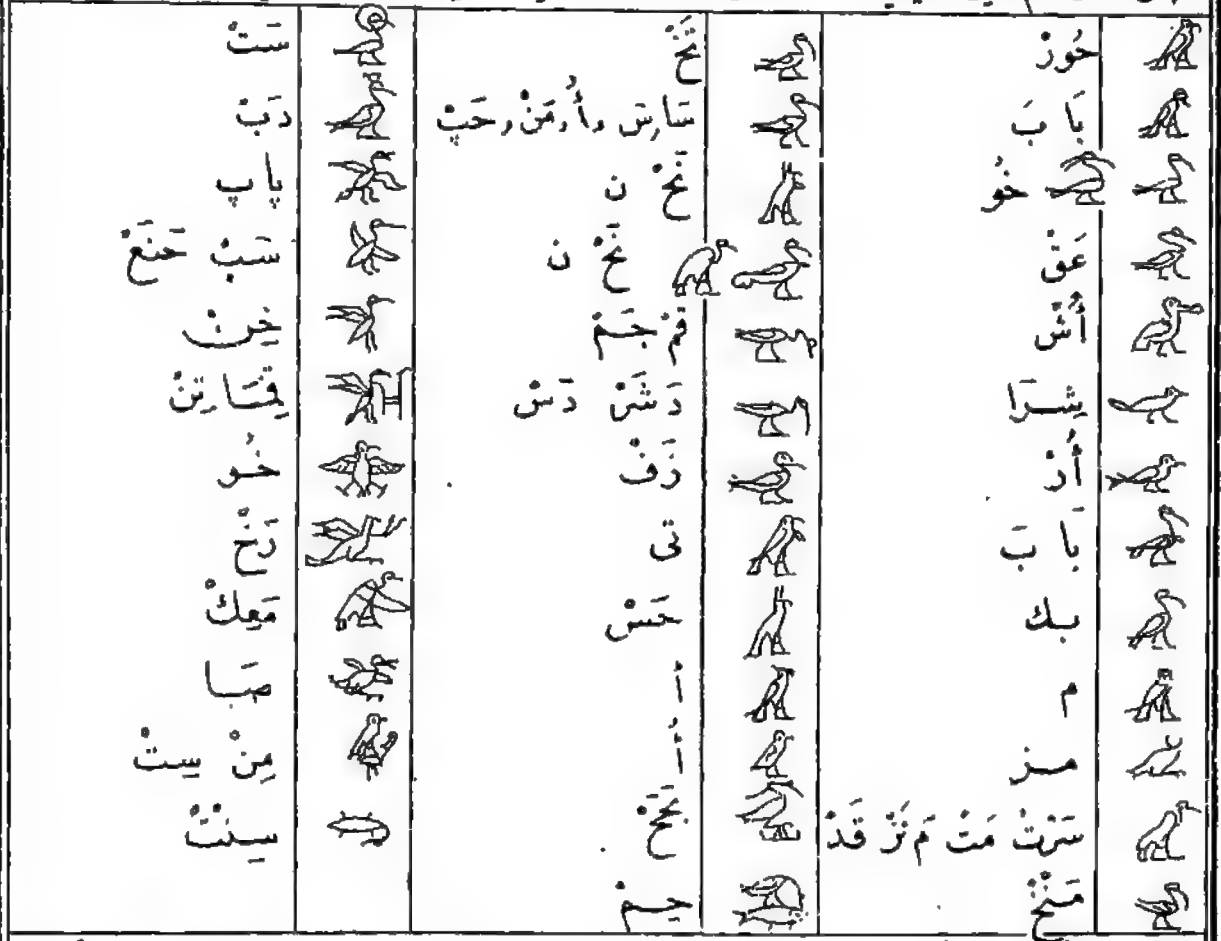 حُورْ
بَا بَ
خُو
عَقْ
أُشْ
شِرَا
أُرْ
بَا بَ
بك
م
مز
سَرْتْ مَتْ مَ نَرْ قَدْ
مَنْخْ
نَخْ
سَا, سَ, أُ, مَنْ, حَپْ
نَحْ ن
نَحْ ن
قَمْ جَمْ
دَشَرْ دَسْ
زَفْ
تى
حَسْ
أَ
أُ
بَحَحْ
حِمْ
سَتْ
دَبْ
پاپ
سَبْ حَنَعْ
خِنْ
خُو
رَخْ
مَعِكْ
صَبا
مِنْ سِتْ
سِنتْ